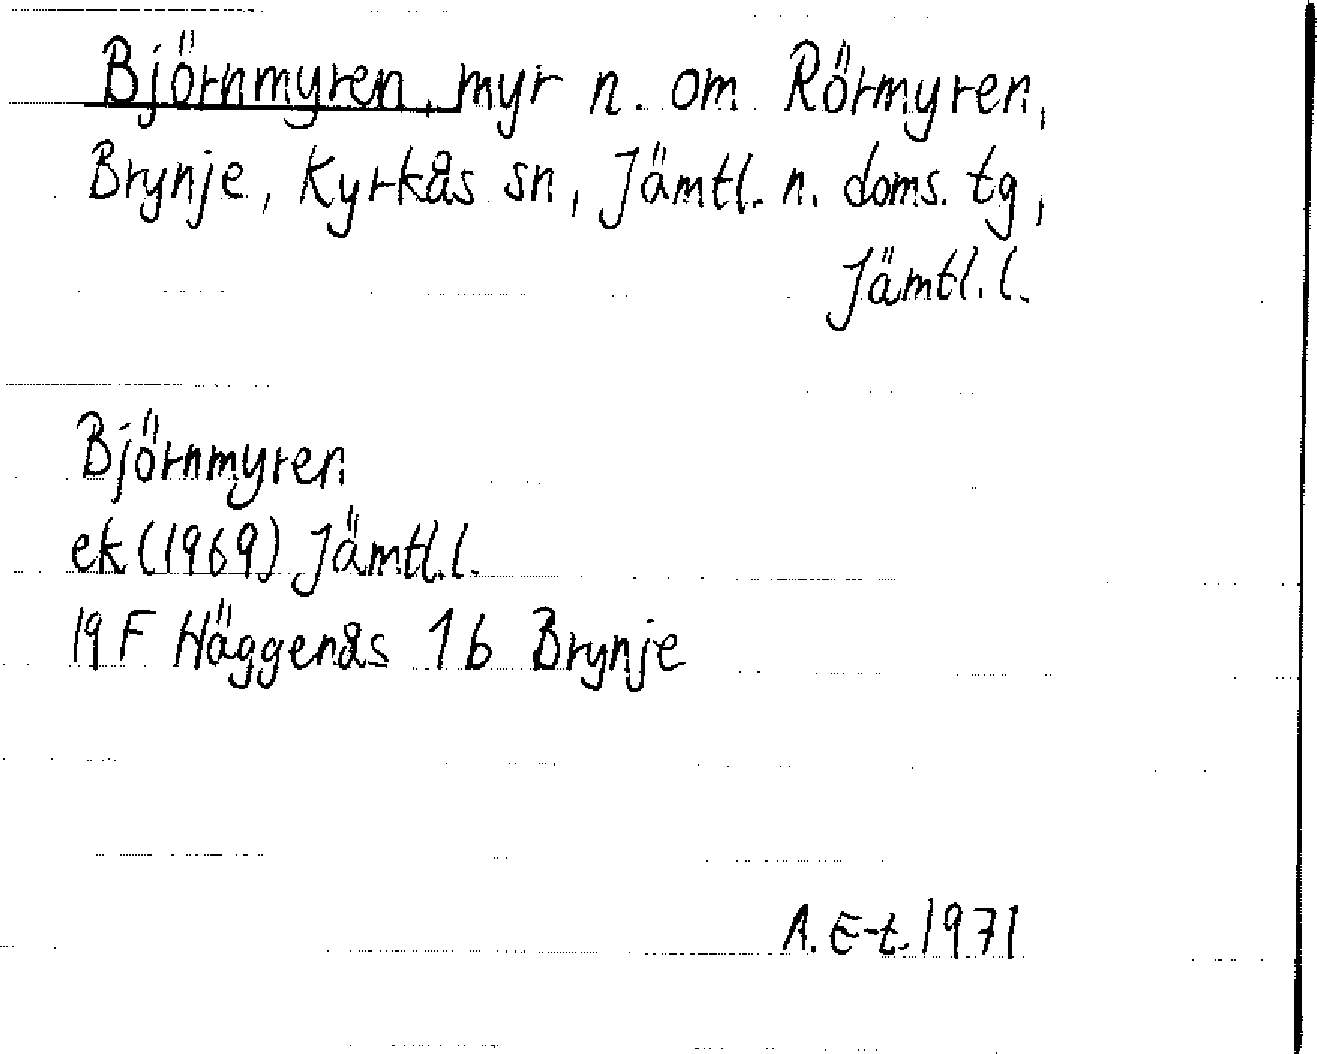 Björnmyren, myr n. om Rörmyren,
Brynje, Kyrkås sn, Jämtl. n. doms. tg,
Jämtl. l.
Björnmyren
ek (1969) Jämtl. l.
19 F Häggenås 1 b Brynje
A. E-t. 1971